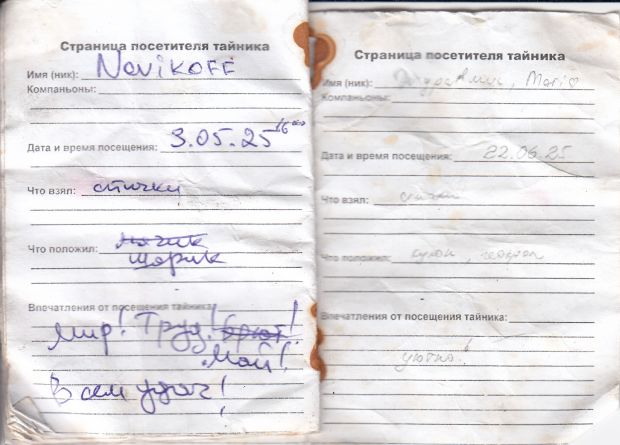 Страница посетителя тайника
Имя (ник): NoviKOFF
Компаньоны:
Дата и время посещения: 3.05.25 16
Что взял: спички
Что положил: мячик
шарик
Впечатления от посещения тайника:
Мир! Труд! !
Май!
Всем удач!
Страница посетителя тайника
Имя (ник): , Mario
Компаньоны:
Дата и время посещения: 22.06.25
Что взял: спички
Что положил:
Впечатления от посещения тайника:
уютно!